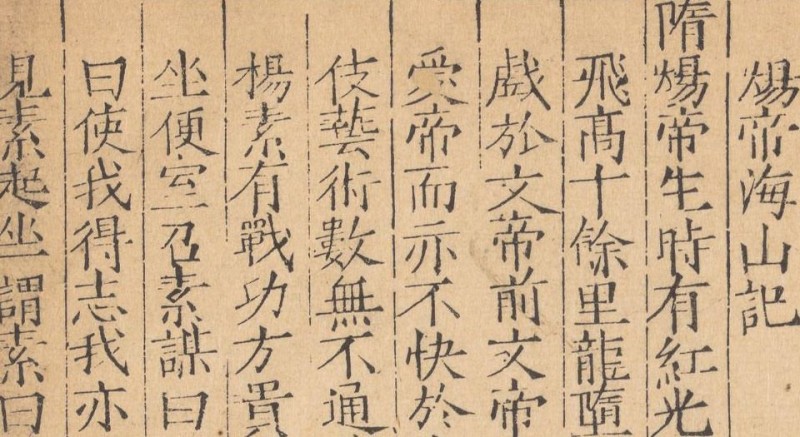 煬帝海山記
隋煬帝生時有紅光
飛髙十餘里龍墮
戲於文帝前文帝
愛帝而亦不快於
伎藝術數無不通
楊素有戰功方貴
坐便室召素謀曰
曰使我得志我亦
見素起坐謂素曰